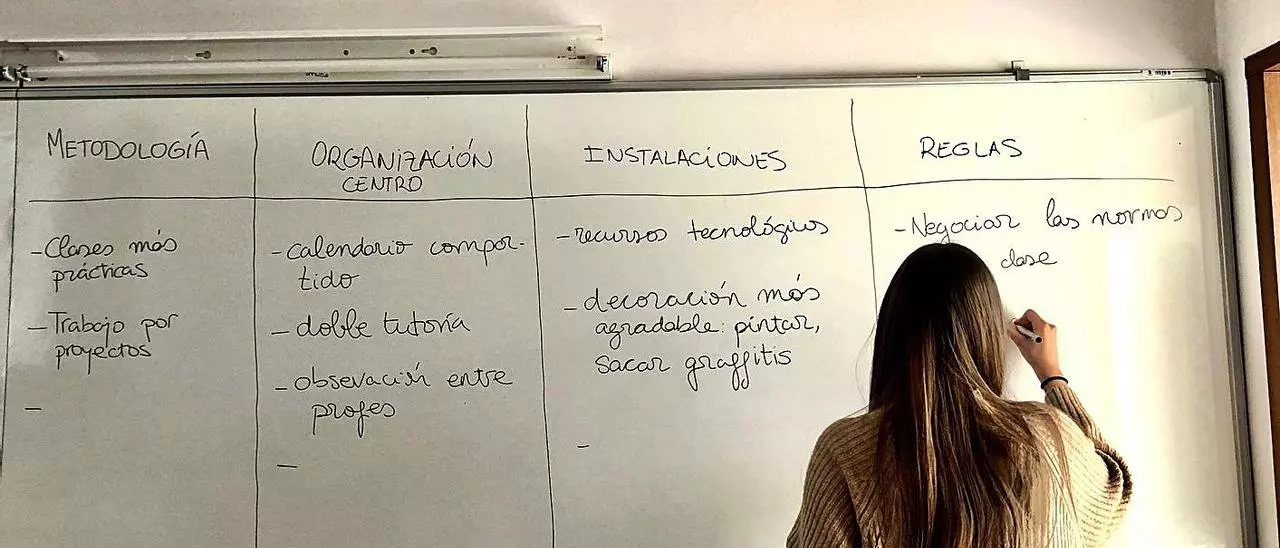 METODOLOGÍA
- Clases más
prácticas
- Trabajo por
proyectos
-
ORGANIZACIÓN
CENTRO
- calendario compar-
tido
- doble tutoría
- obsevación entre
profes
-
INSTALACIONES
- recursos tecnológicos
- decoración más
agradable: pintar,
sacar graffitis
-
REGLAS
- Negociar las normas
clase